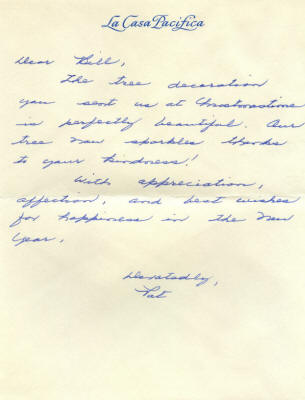 La Casa Pacifica
Dear Bill,
The tree decoration
you sent us at Christmastime
is perfectly beautiful. Our
tree now sparkles thanks
to your kindness!
With appreciation,
affection, and best wishes
for happiness in the New
Year.
Devotedly,
Pat